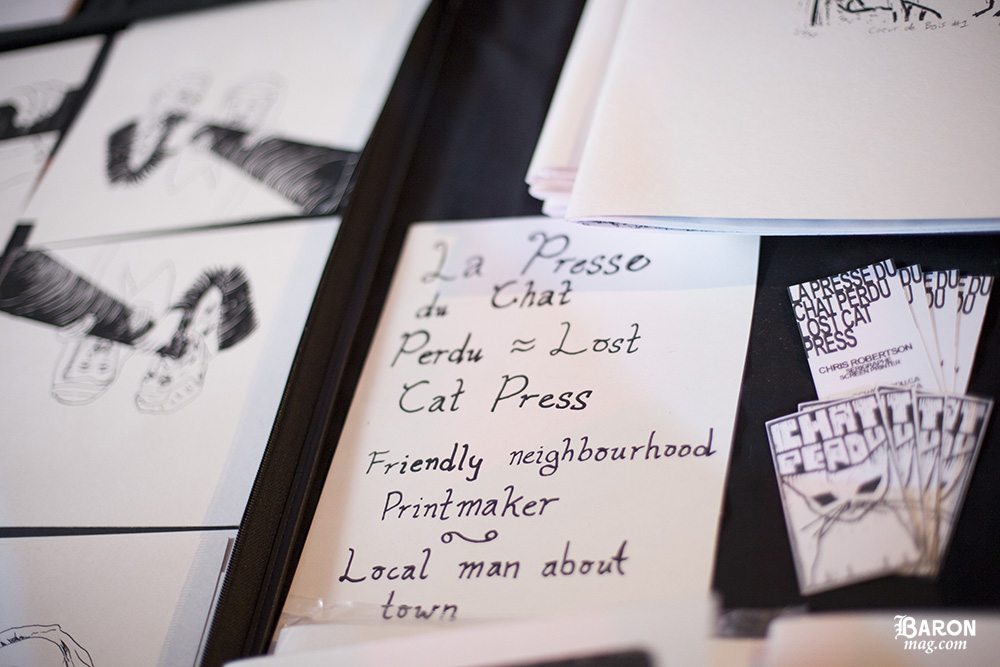 Coeur de Bois #1
La Presse
du Chat
Perdu ≈ Lost
Cat Press
Friendly neighbourhood
Printmaker
Local man about
town
LA PRESSE DU
CHAT PERDU
LOST CAT
PRESS
CHRIS ROBERTSON
SERIGRAPHE
SCREEN PRINTER
DU
DU
DU
CHAT
PERDU
BARON
mag.com